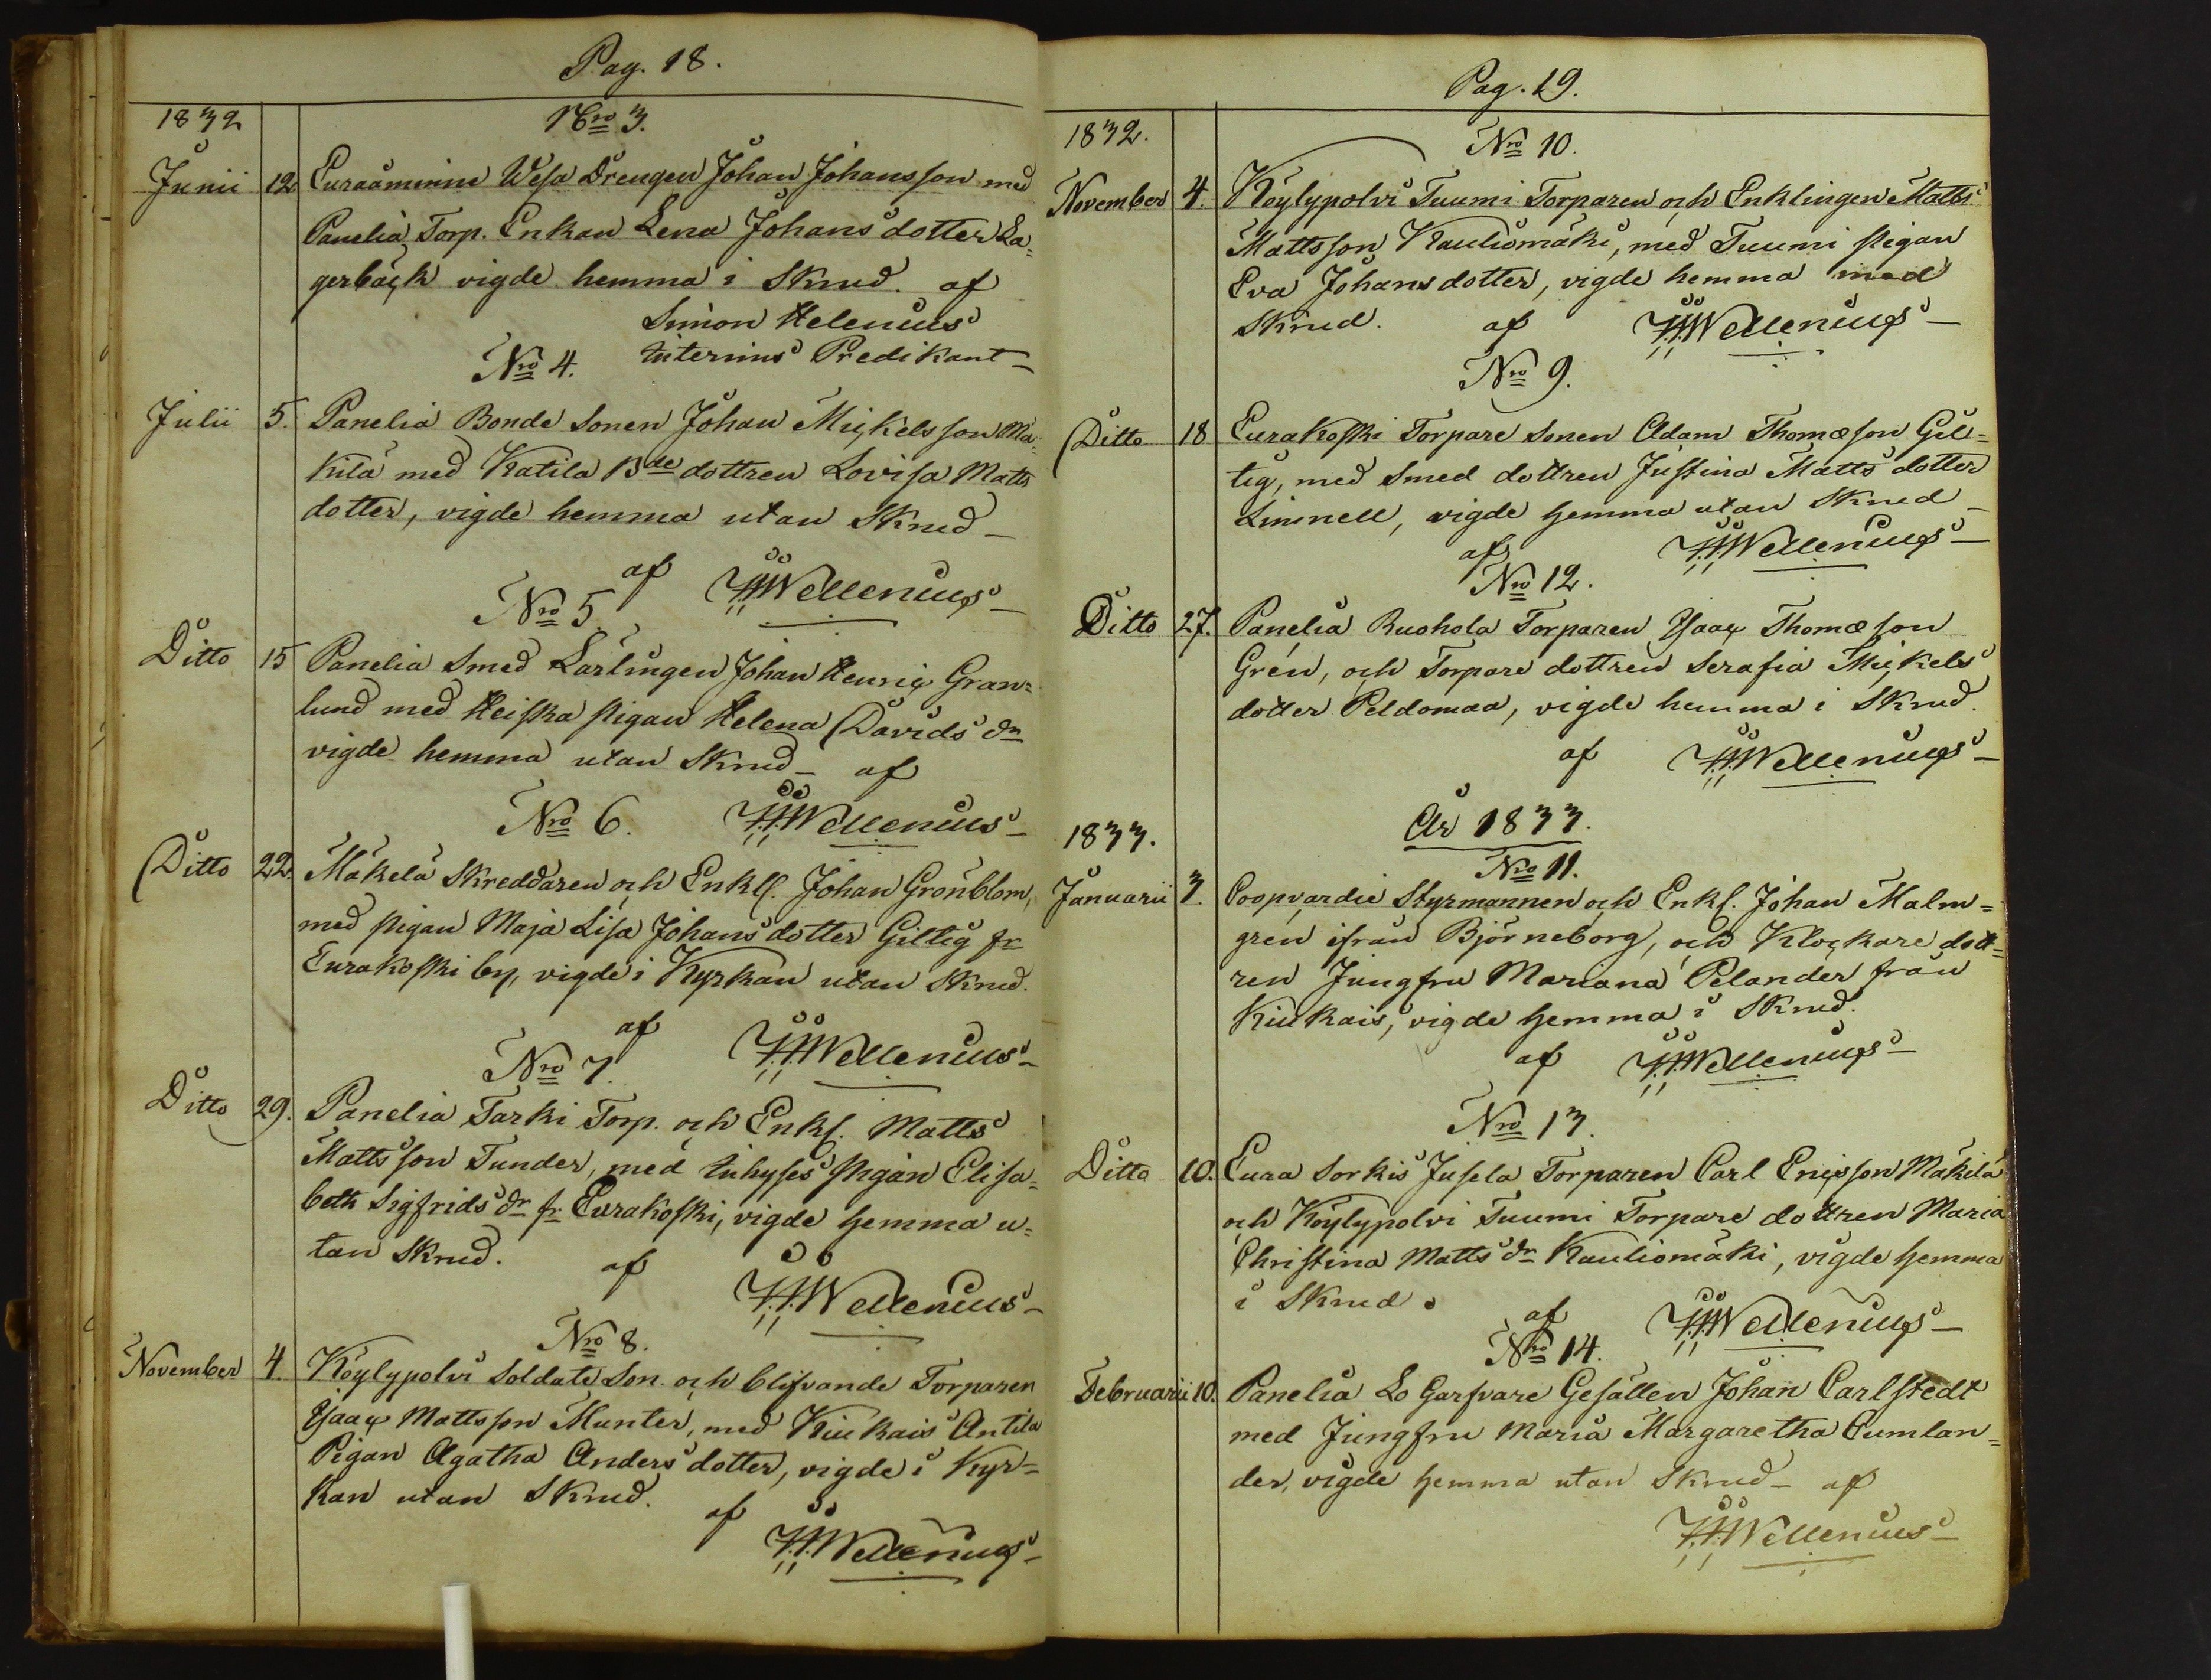 Pag. 18.
1832
Nro 3.
Junii 12 Euraåminne Wesa Drengen Johan Johansson med
Panelia Torp. Enkan Lena Johans dotter La=
gerbäck vigde hemma i Skrud. af
Simon Helenius
Interims Predikant
Nro 4.
Julii 5. Panelia Bonde Sonen Johan Mickelsson Mä=
kilä med Katila Bde dottren Lovisa Matts
dotter, vigde hemma utan Skrud
af Wellenius
Nro 5
Ditto 15 Panelia Smed Lärlingen Johan Henric Gran=
lund med Heiska pigan Helena Davids dr
vigde hemma utan Skrud af
Wellenius
Nro 6.
Ditto 22. Mäkelä Skreddaren och Enkl. Johan Grönblom,
med pigan Maja Lisa Johans dotter Giltig fr
Eurakoski by, vigde i Kyrkan utan Skrud.
af Wellenius
Nro 7.
Ditto 29. Panelia Tarki Torp. och Enkl. Matts
Mattsson Tunder, med Inhyses pigan Elisa=
beth Sigfrids dr fr Eurakoski, vigde hemma u=
tan Skrud. af
Wellenius
Nro 8.
November 4. Köylypolvi Soldate Son och blifvande Torparen
Isaac Mattsson Munter, med Kiukais Antila
Pigan Agatha Anders dotter, vigde i Kyr=
kan utan Skrud. af
Wellenius
Pag. 19.
1832.
Nro 10.
November 4. Köylypolvi Tuumi Torparen och Enklingen Matts
Mattsson Kauliomäki, med Tuumi pigan
Eva Johans dotter, vigde hemma med
Skrud. af Wellenius
Nro 9.
Ditto 18 Eurakoski Torpare Sonen Adam Thomæson Gil=
tig, med Smed dottren Justina Matts dotter
Limnell, vigde hemma utan Skrud
af Wellenius
Nro 12.
Ditto 27. Panelia Ruohola Torparen Isaac Thomæson
Grén, och Torpare dottren Serafia Mickels
dotter Peldomaa, vigde hemma i Skrud.
af Wellenius
År 1833.
1833.
Nro 11.
Januarii 3. Coopvardie Styrmannen och Enkl. Johan Malm=
gren ifrån Björneborg, och Klockare dott=
ren Jungfru Mariana Pelander från
Kiukais, vigde hemma i Skrud.
af Wellenius
Nro 13.
Ditto 10. Eura Sorkis Jusela Torparen Carl Ericsson Mäkilä
och Köylypolvi Tuumi Torpare dottren Maria
Christina Matts dr Kauliomäki, vigde hemma
i Skrud. af Wellenius
Nro 14.
Februarii 10. Panelia Lo Garfvare Gesällen Johan Carlstedt
med Jungfru Maria Margaretha Cumlan=
der, vigde hemma utan Skrud af
Wellenius